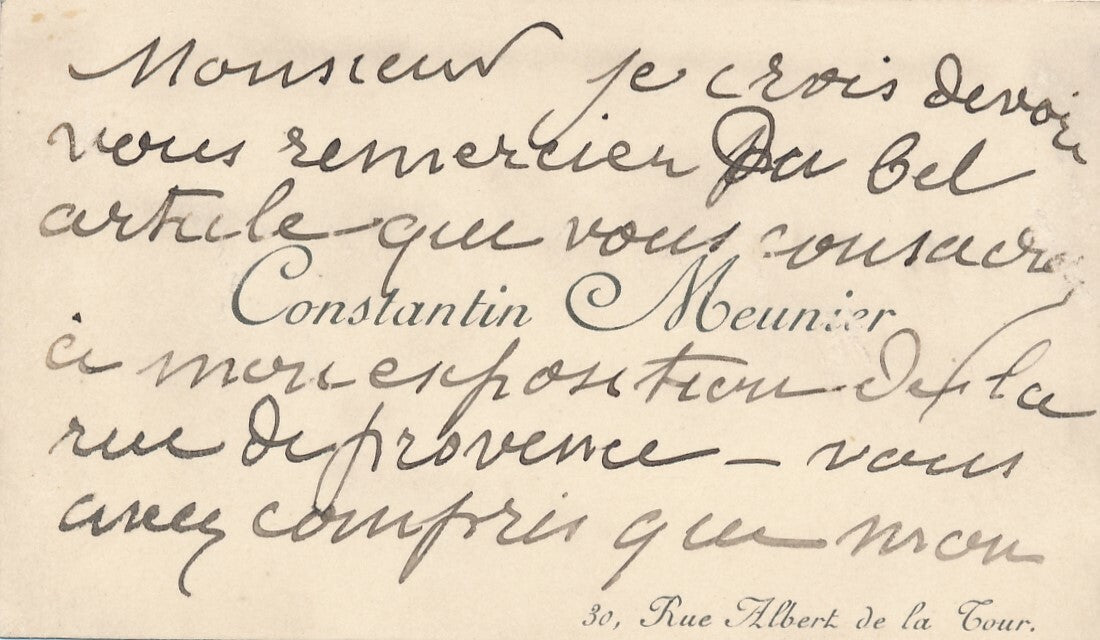 Monsieur je crois devoir
vous remercier Du bel
article que vous consacrez
Constantin Meunier
à mon exposition de la
rue de provence — vous
avez compris que mon
30, Rue Albert de la Tour.